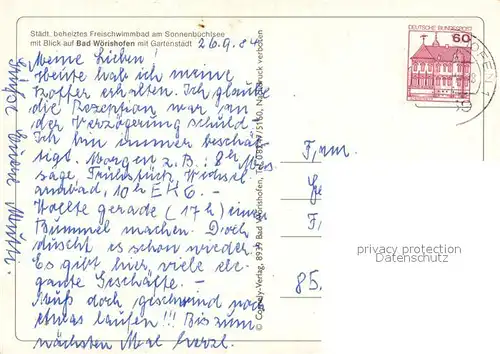 Städt. beheiztes Freischwimmbad am Sonnenbüchlsee
mit Blick auf Bad Wörishofen mit Gartenstadt
26.9.84
Meine Lieben!
Heute hab ich meine
Koffer erhalten. Ich glaube
die Rezeption war an
der Verzögerung schuld!
Ich bin immer beschäf
tigt. Morgen z.B.: 8h Mas
sage, Frühstück, Wechsel
armbad, 10h EHG. –
Wollte gerade (17h) einen
Bummel machen. Doch
duscht es schon wieder.
Es gibt hier viele ele
gante Geschäfte. –
Muß doch geschwind noch
etwas laufen!!! Bis zum
nächsten Mal herzl.
Grüße Eure Mutti.
© Comody-Verlag, 8939 Bad Wörishofen, Tel. Nachdruck verboten
DEUTSCHE BUNDESPOST
60
Fam.
F
85
privacy protection
Datenschutz